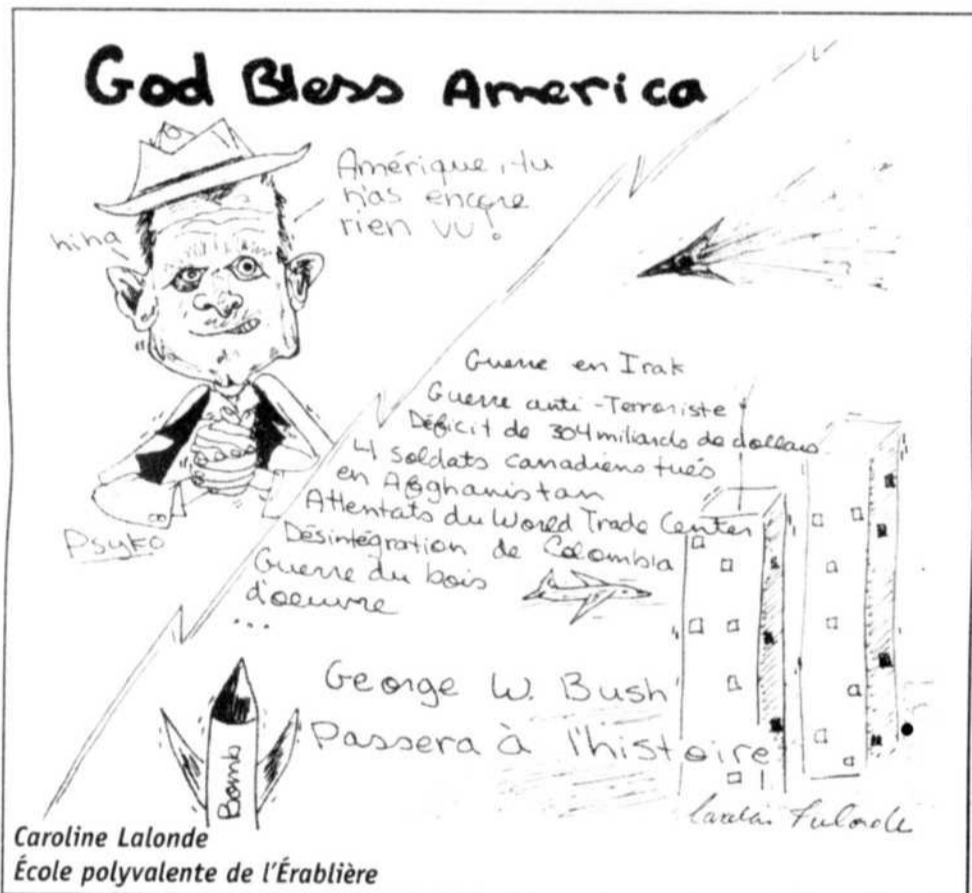 God Bless America
Amérique, tu
n'as encore
rien vu!
hiha
Psyko
Guerre en Irak
Guerre anti-Terroriste
Déficit de 304 miliards de dollars
4 soldats canadiens tués
en Afghanistan
Attentats du World Trade Center
Désintégration de Colombia
Guerre du bois
d'oeuvre
...
George W. Bush
Passera à l'histoire
Bomb
Caroline Lalonde
École polyvalente de l'Érablière